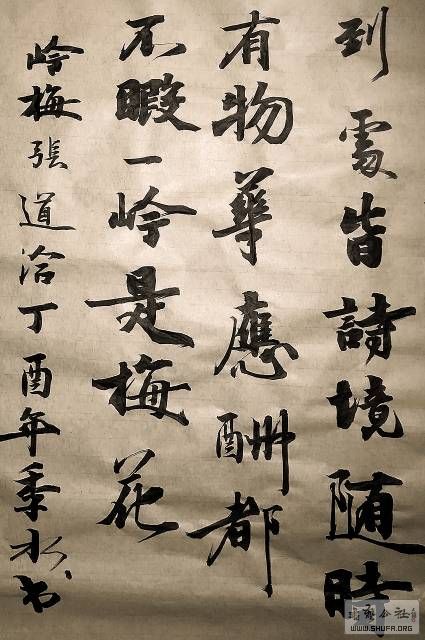 到處皆詩境隨時
有物華應酬都
不暇一岭是梅花
岭梅張道洽丁酉年季水书
书法公社
WWW.SHUFA.ORG